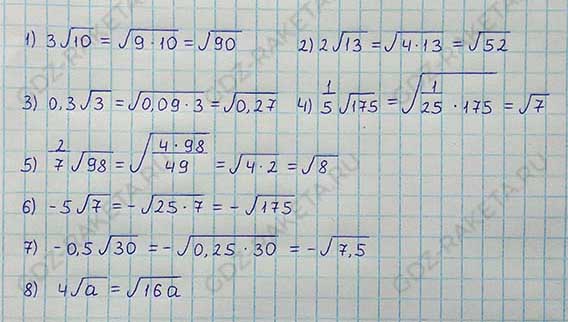 1) 3√10 = √9·10 = √90 2) 2√13 = √4·13 = √52
3) 0,3√3 = √0,09·3 = √0,27 4) 1/5√175 = √1/25·175 = √7
5) 2/7√98 = √4·98/49 = √4·2 = √8
6) -5√7 = -√25·7 = -√175
7) -0,5√30 = -√0,25·30 = -√7,5
8) 4√a = √16a
GDZ-RAKETA.RU